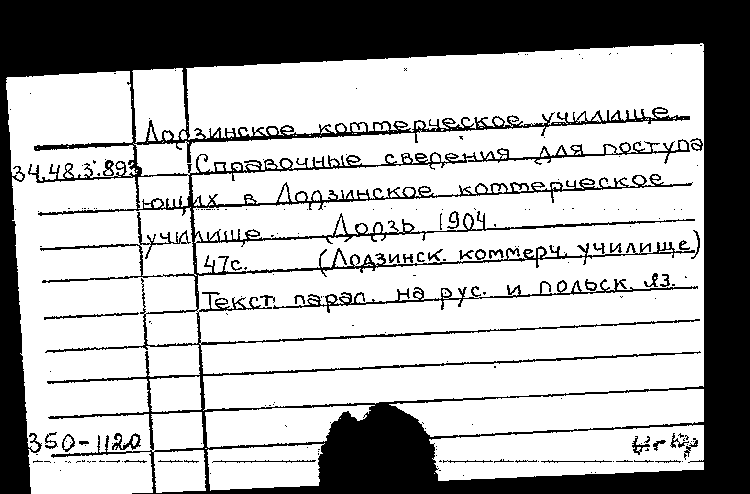 Лодзинское коммерческое училище.
34.48.3.893 Справочные сведения для поступа
ющих в Лодзинское коммерческое
училище. Лодзь, 1904.
47с. (Лодзинск. коммерч. училище)
Текст парал. на рус. и польск. яз.
350-1120